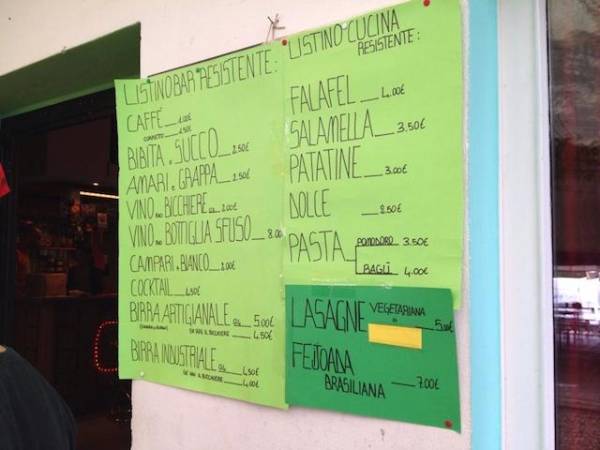 LISTINO BAR "RESISTENTE:
CAFFÈ 1.00€
CORRETTO 1.50€
BIBITA o SUCCO 2.50€
AMARI o GRAPPA 2.50€
VINO BICCHIERE 2.00€
VINO BOTTIGLIA SFUSO 8.00
CAMPARI + BIANCO
COCKTAIL
BIRRA ARTIGIANALE 5.00€
SE HAI IL BICCHIERE 4,50€
BIRRA INDUSTRIALE 4,50€
SE HAI IL BICCHIERE 4,00€
LISTINO CUCINA
RESISTENTE:
FALAFEL 4.00€
SALAMELLA 3.50€
PATATINE 3.00€
DOLCE 2.50€
PASTA POMODORO 3.50€
RAGÙ 4,00€
LASAGNE VEGETARIANA
FEJJOADA
BRASILIANA 7.00€